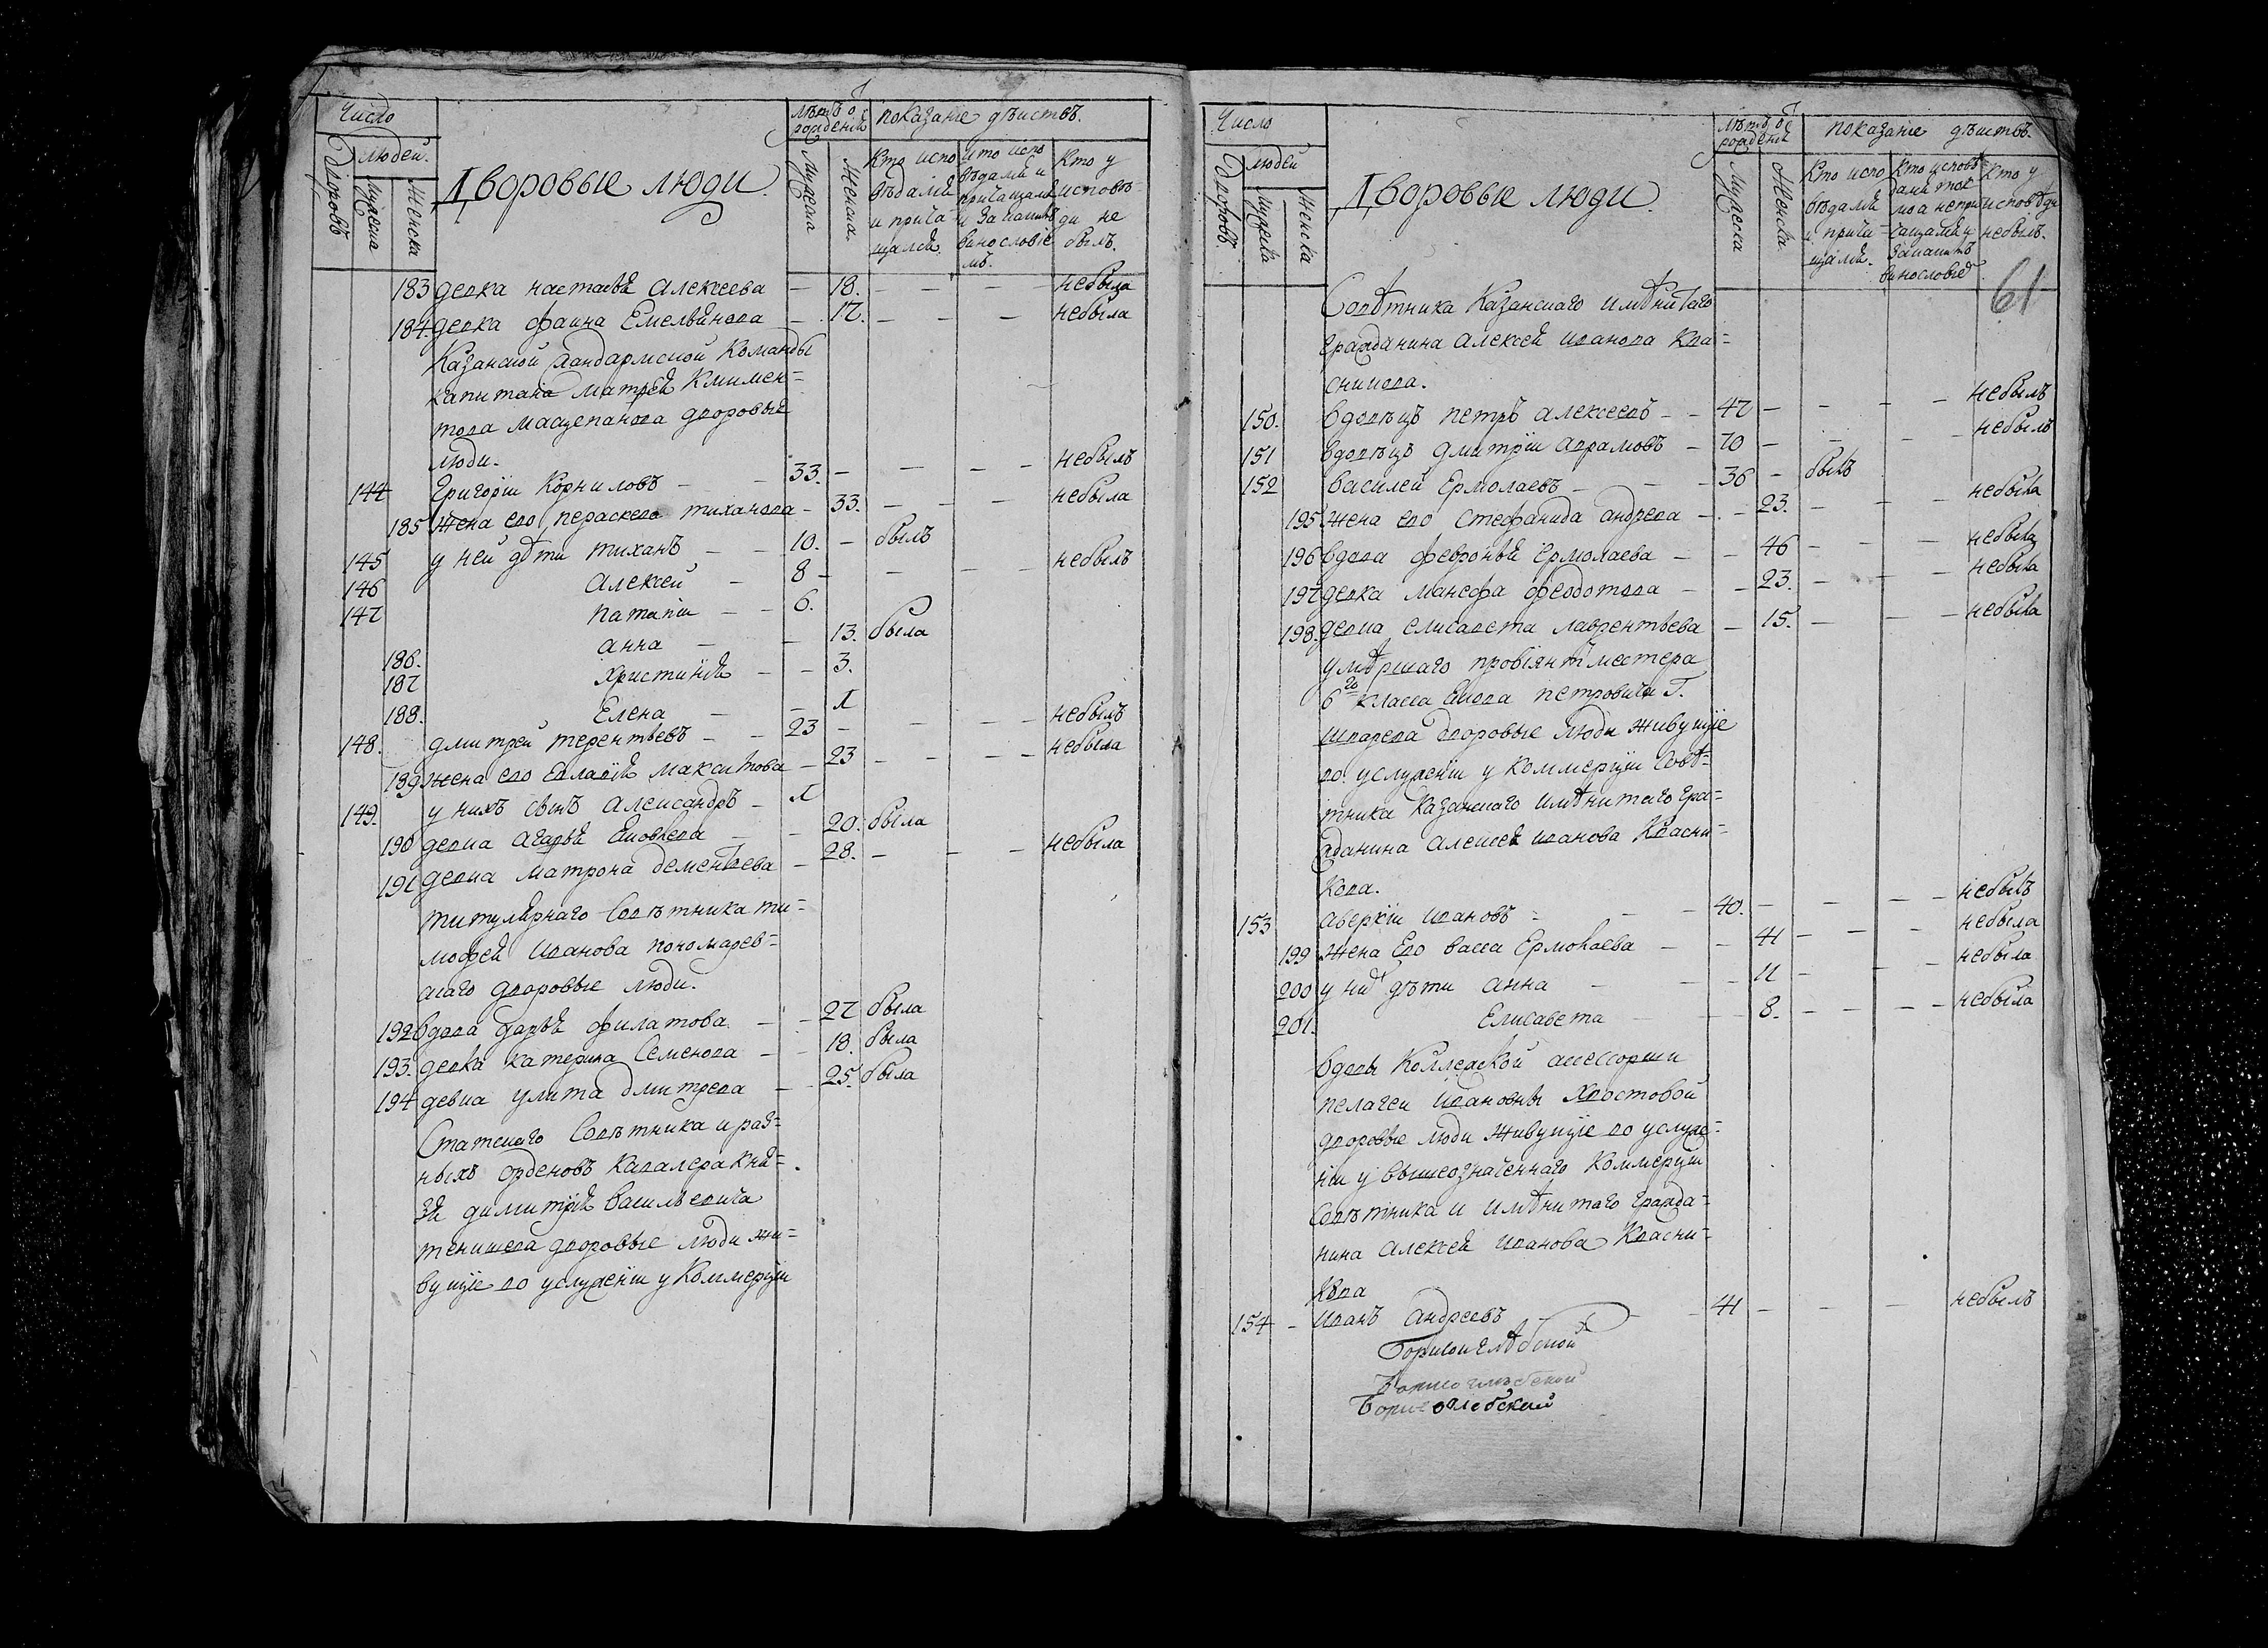 Число
людей.
Дворовъ
мужеска
Женска
Дворовые люди.
лѣтъ о
рожденія
Мужеска
Женска.
показаніе дѣиствъ.
Кто испо
вѣдался
и прича
щался.
кто испо
вѣдался и
причащался
и за какимъ
винословіе
мъ.
Кто у
исповѣ
ди не
былъ.
183 девка настасья Алексеева — 18. — — — небыла
184. девка фаина Емельянова — 17. — — — небыла
Казанской жандармской Команды
капитана матвея Климен=
това дворовые
люди.
144 Григорїи Корниловъ — — 33. — — — — небылъ
185 Жена ево пераскева тиханова — 33. — — — небыла
145 у ней дѣти тиханъ — — 10. — былъ
146 Алексей — 8 — — — — небылъ
147 патапіи — — 6.
186. анна — — 13. была
187 христинья — — 3.
188. Елена — — 1
148. дмитреи терентьевъ — — 23 — — — — небылъ
189 жена ево Евлапія максимова — 23 — — — — небыла
149. у нихъ сынъ Александръ — 1
190 девка агафья — — 20. была
191 девка матрона дементьева — 28. — — — небыла
титулярнаго Советника ти=
мофея Иванова пономарев=
скаго дворовые люди.
192 вдова дарья филатова. — — 27 была
193. девка катерина Семенова — — 18. была
194 девка улита дмитрева — — 25. была
Статскаго Советника и раз=
ныхъ орденовъ кавалера кня=
зя димитрія васильевича
тенишева дворовые люди жи=
вущіе во услуженіи у Коммерціи
Число
людей
Дворовъ.
мужеска
Женска
Дворовые люди.
лѣтъ о
рожденія
Мужеска
Женска
показаніе дѣиствъ.
Кто испо
вѣдался
и прича
щался.
Кто исповѣ
дался токмо
а непри
чащался и
за какимъ
винословіе
Кто у
исповѣди
небылъ.
61
Совѣтника Казанскаго имѣнитаго
гражданина алексея иванова Кра=
сникова.
150. вдовецъ петръ алексеевъ — — 47 — — — — небылъ
151 вдовецъ дмитріи аврамовъ — 70 — — — — небылъ
152 василеи Ермолаевъ — — — 36 — былъ
195 жена ево Стефанида андрева — — 23. — — — небыла
196 вдова февронья Ермолаева — — 46 — — — небыла
197 девка манефа феодотова — — 23. — — — небыла
198. девка елисавета лаврентьева — 15. — — — небыла
умѣршаго провіянтместера
6го класса петровича Г.
дворовые люди живущіе
во услуженіи у коммерціи Совѣ=
тника казанскаго имѣнитаго гра=
жданина алексея иванова Красни=
кова.
153 аверкіи ивановъ — — — 40. — — — — небылъ
199 жена Ево васса Ермолаева — — 41 — — — небыла
200 у них дѣти анна — — — 11 — — — небыла
201. Елисавета — — 8. — — — — небыла
вдовы Коллежской ассессорши
пелагеи ивановны Хвостовой
дворовые люди живущіе во услуже=
ніи у вышеозначеннаго Коммерціи
Советника и имѣнитаго гражда=
нина алексея иванова Красни=
кова
154 — иванъ андреевъ — 41 — — — небылъ
Борисоглѣбской
Борисоглѣбской
Борисоглебский